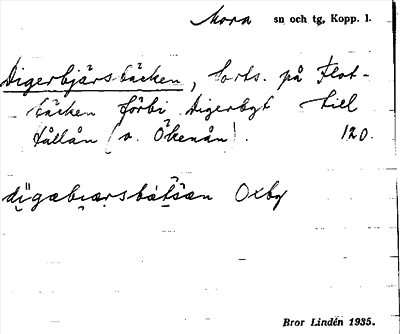 Mora sn och tg, Kopp. l.
Digerbjärsbäcken, forts. på Flot-
bäcken förbi Digerbyt till
Fållån (o. Ökenån). 120.
Oxbg
Bror Lindén 1935.